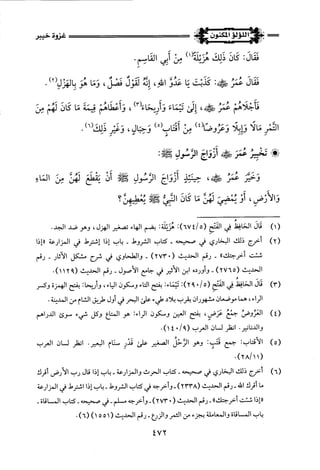 اللؤلؤ المكنون
غزوة خيبر
فَقَالَ: كَانَ ذَلِكَ هُزَيْلَةً(١) مِنْ أَبِي القَاسِمِ.
فَقَالَ عُمَرُ ﷺ: كَذَبْتَ يَا عَدُوَّ اللهِ، إِنَّهُ لَقَوْلٌ فَصْلٌ، وَمَا هُوَ بِالهَزْلِ(٢).
فَأَجْلَاهُمْ عُمَرُ ﷺ، إِلَى تَيْمَاءَ وَأَرِيحَاءَ(٣)، وَأَعْطَاهُمْ قِيمَةَ مَا كَانَ لَهُمْ مِنَ
الثَّمَرِ مَالًا وَإِبِلًا وَعُرُوضًا(٤) مِنْ أَقْتَابٍ(٥) وَحِبَالٍ، وَغَيْرِ ذَلِكَ(٦).
تَخْيِيرُ عُمَرَ ﷺ أَزْوَاجَ الرَّسُولِ ﷺ:
وَخَيَّرَ عُمَرُ ﷺ، حِينَئِذٍ أَزْوَاجَ الرَّسُولِ ﷺ أَنْ يَقْطَعَ لَهُنَّ مِنَ المَاءِ
وَالأَرْضِ، أَوْ يُمْضِيَ لَهُنَّ مَا كَانَ النَّبِيُّ ﷺ يُعْطِيهِنَّ؟
(١) قال الحافظ في الفتح (٥/ ٦٧٤): هُزَيْلَةً: بضم الهاء تصغير الهزل، وهو ضد الجد.
(٢) أخرج ذلك البخاري في صحيحه - كتاب الشروط - باب إذا اشترط في المزارعة إذا
شئت أخرجتك - رقم الحديث (٢٧٣٠) - والطحاوي في شرح مشكل الآثار - رقم
الحديث (٢٧٦٥) - وأورده ابن الأثير في جامع الأصول - رقم الحديث (١١٢٩).
(٣) قال الحافظ في الفتح (٥/ ٢٩٠): تَيْمَاءَ: بفتح التاء وسكون الياء، وأريحاء: بفتح الهمزة وكسر
الراء، هما موضعان مشهوران بقرب بلاد طيء على البحر في أول طريق الشام من المدينة.
(٤) العُرُوضُ جمع عَرْضٍ، بفتح العين وسكون الراء: وهو المتاع وكل شيء سوى الدراهم
والدنانير. انظر لسان العرب (٩/ ١٤٠).
(٥) الأَقْتَابُ: جمع قَتَبٍ: وهو الرَّحْلُ الصغير على قدر سنام البعير. انظر لسان العرب
(١١/ ٢٨).
(٦) أخرج ذلك البخاري في صحيحه - كتاب الحرث والمزارعة - باب إذا قال رب الأرض أقرك
ما أقرك الله - رقم الحديث (٢٣٣٨) - وأخرجه في كتاب الشروط - باب إذا اشترط في المزارعة
إذا شئت أخرجتك - رقم الحديث (٢٧٣٠) - وأخرجه مسلم في صحيحه - كتاب المساقاة -
باب المساقاة والمعاملة بجزء من الثمر والزرع - رقم الحديث (١٥٥١) (٦).
٤٧٢